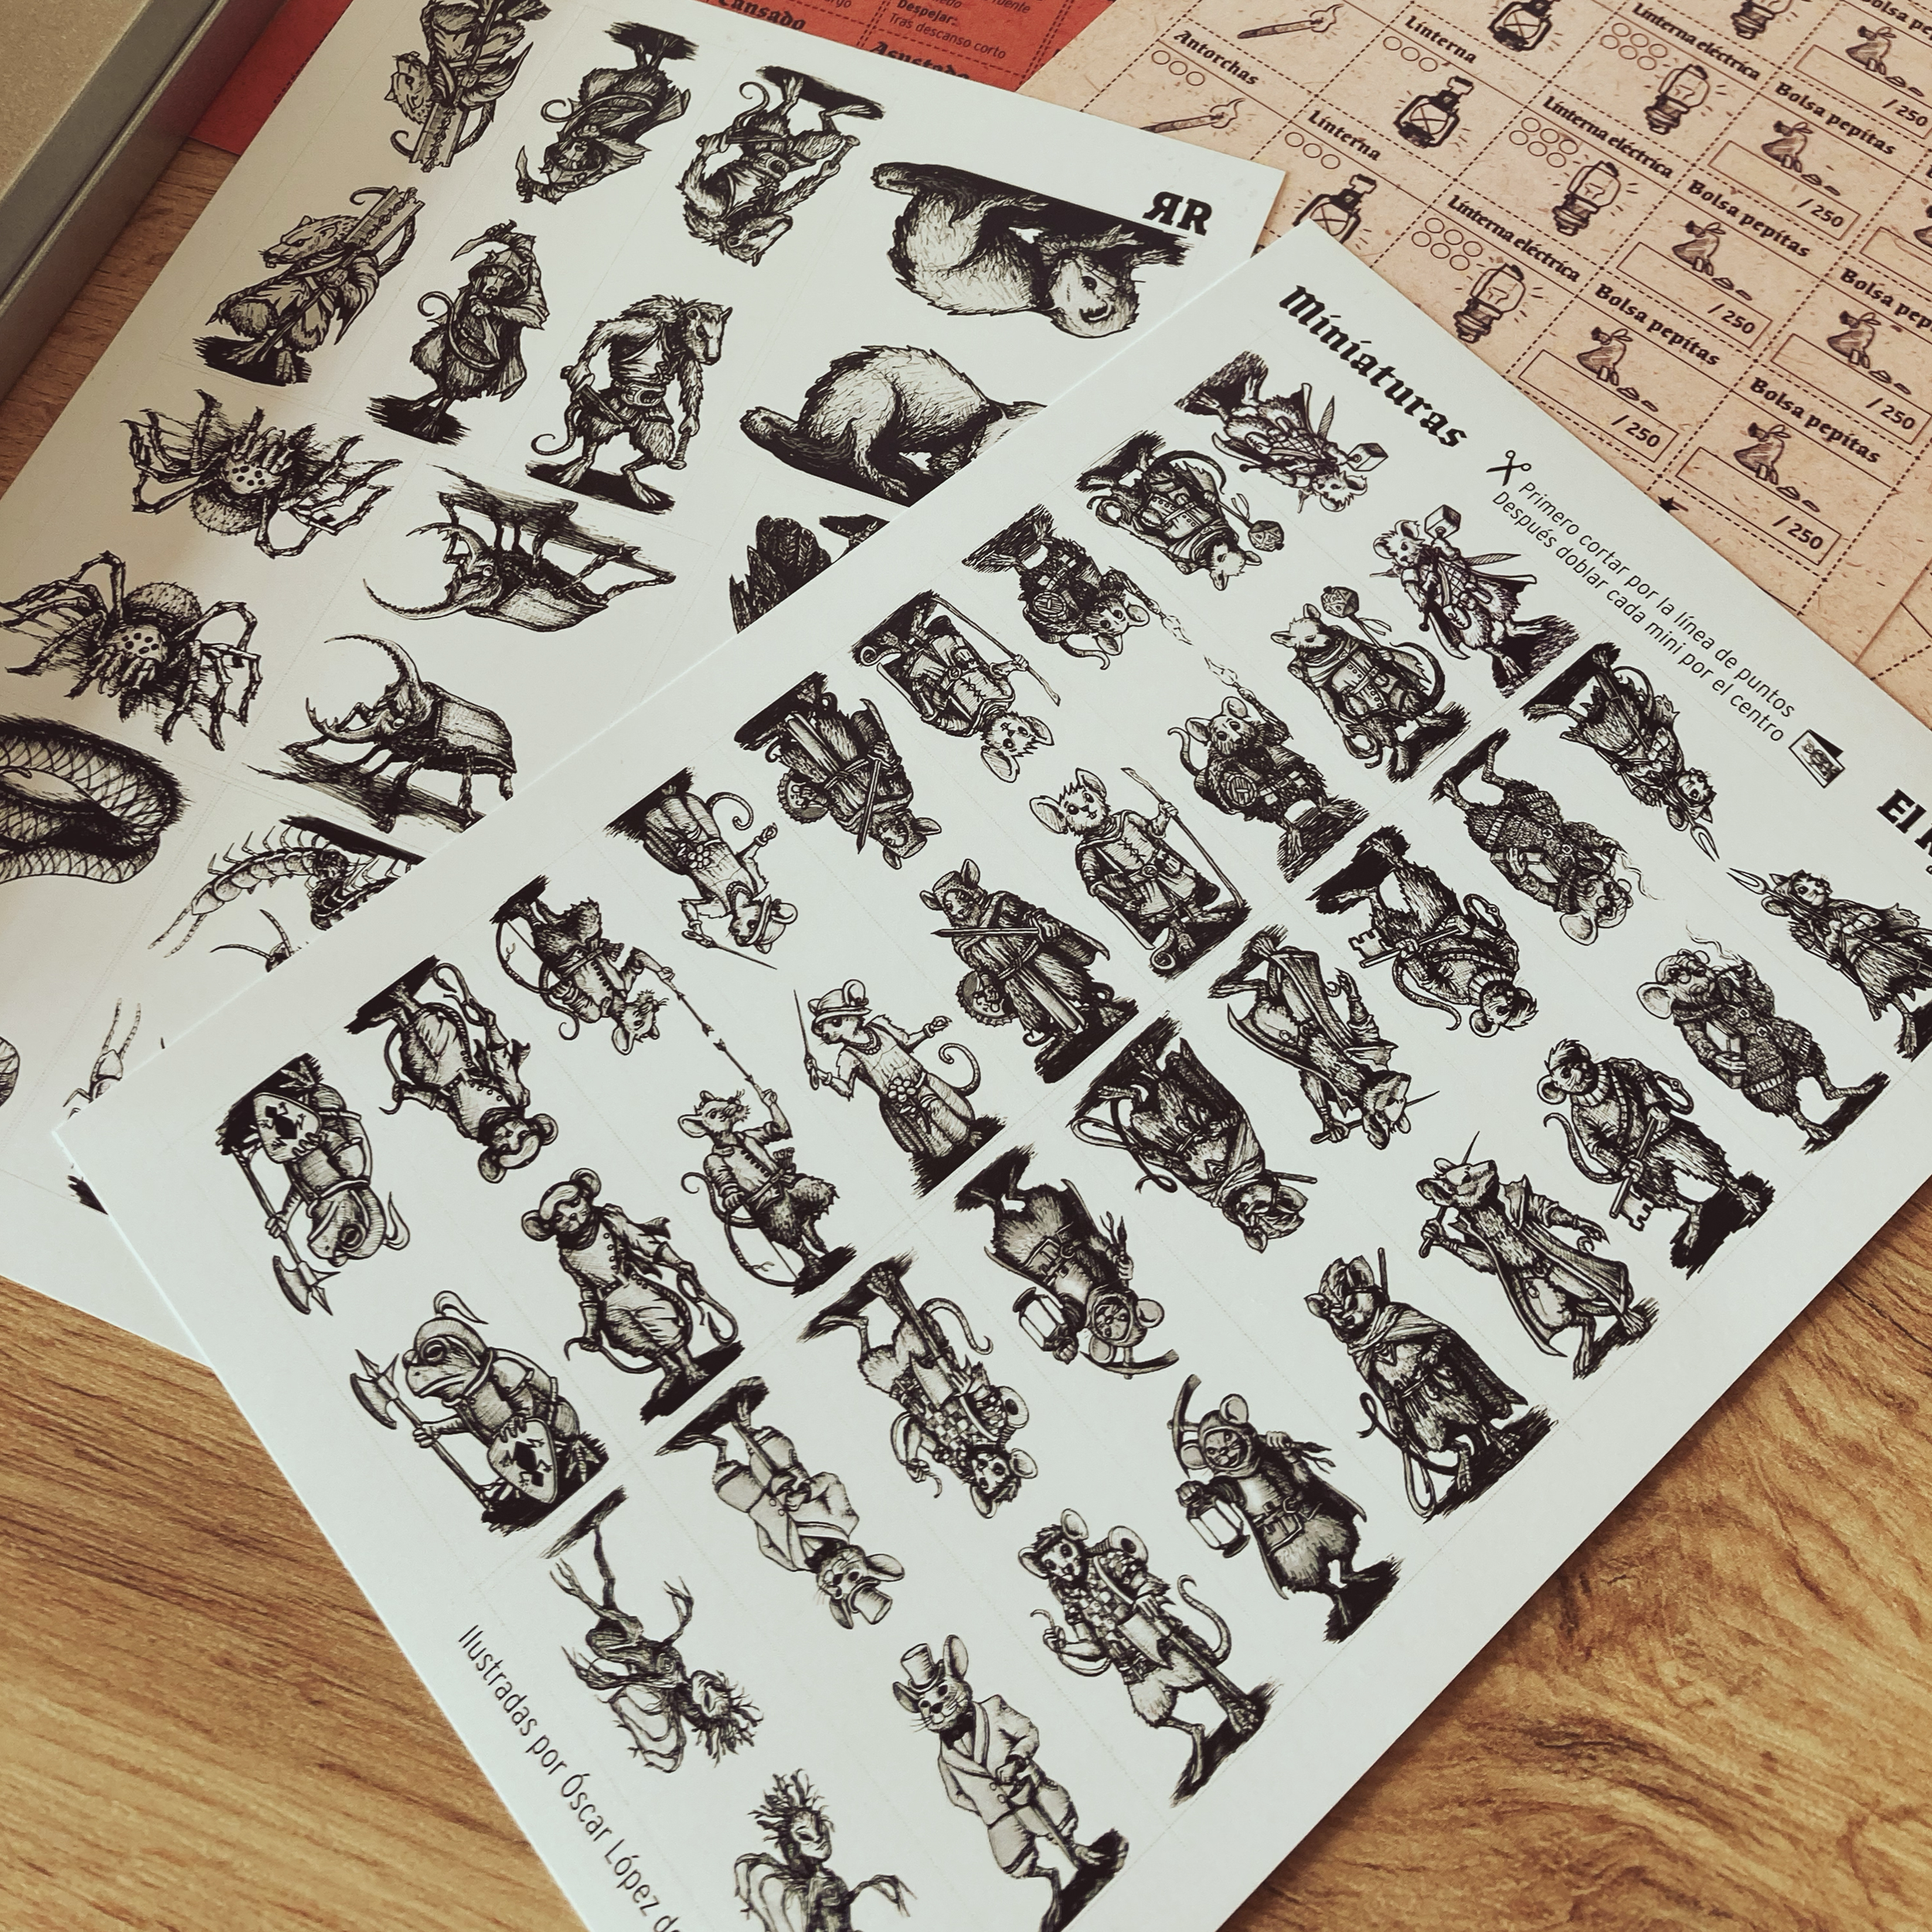 Cansado
Despejar:
Tras descanso corto
Asustado
Antorchas
Linterna
Linterna eléctrica
Bolsa pepitas
/ 250
Linterna
Linterna eléctrica
Bolsa pepitas
/ 250
Linterna eléctrica
Bolsa pepitas
/ 250
Bolsa pepitas
/ 250
Bolsa pepitas
/ 250
Bolsa pepitas
/ 250
ЯR
Miniaturas
Primero cortar por la línea de puntos
Después doblar cada mini por el centro
El
Ilustradas por Óscar López